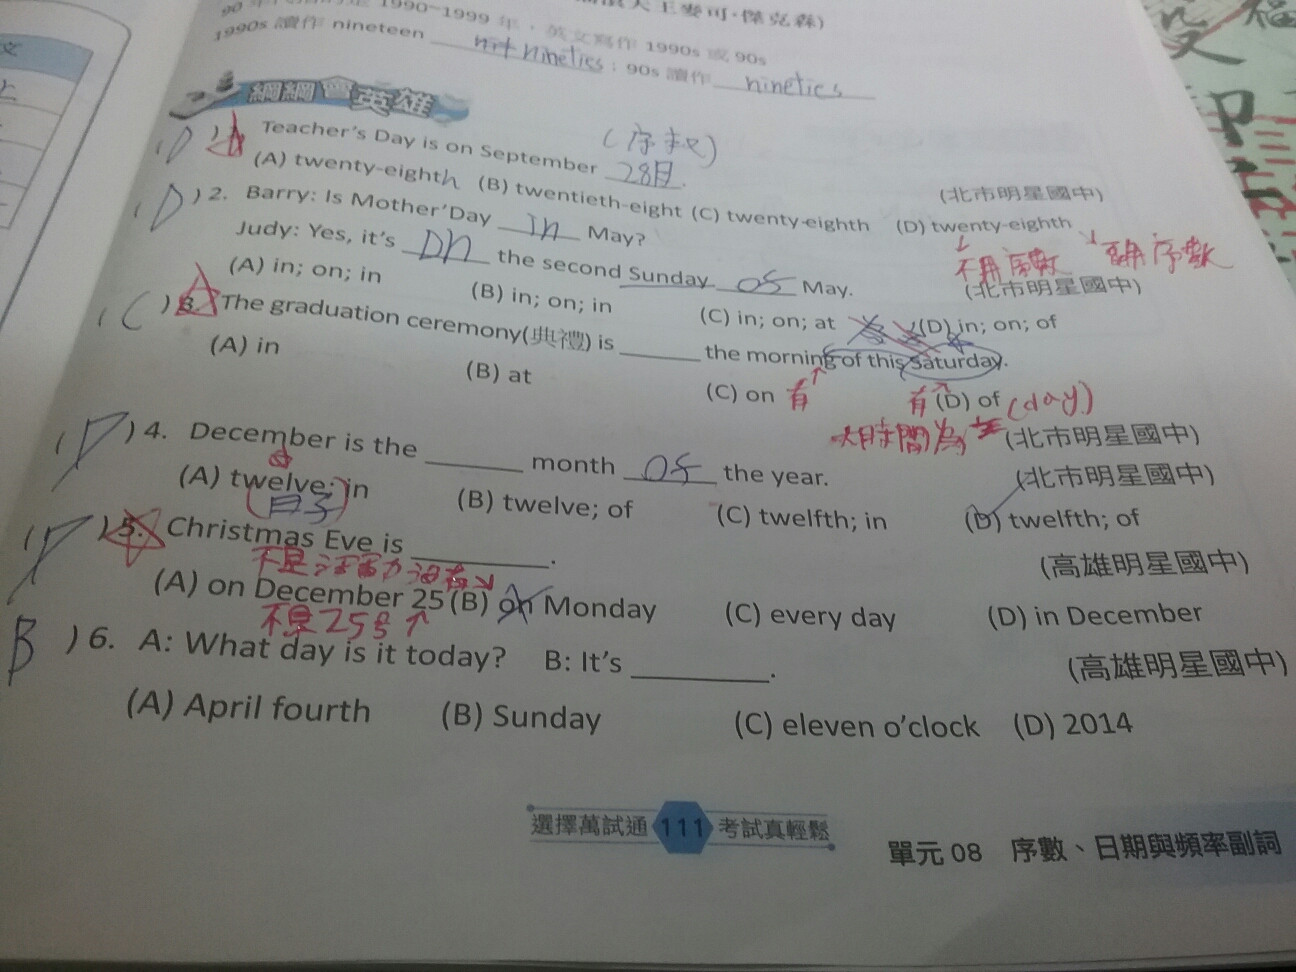 1990~1999 年，英文寫作 1990s 或 90s
1990s 讀作 nineteen nineties；90s 讀作 nineties
綱綱會英雄
(D) 1. Teacher's Day is on September 28日.
(序數)
(北市明星國中)
(A) twenty-eighth (B) twentieth-eight (C) twenty-eighth (D) twenty-eighth
序數
(D) 2. Barry: Is Mother'Day In May?
Judy: Yes, it's On the second Sunday of May.
(北市明星國中)
(A) in; on; in (B) in; on; in (C) in; on; at (D) in; on; of
(C) 3. The graduation ceremony(典禮) is ______ the morning of this Saturday.
(A) in (B) at (C) on 有 有 (D) of (day)
(北市明星國中)
(D) 4. December is the ______ month of the year.
(北市明星國中)
(A) twelve; in (B) twelve; of (C) twelfth; in (D) twelfth; of
) 5. Christmas Eve is ______.
(高雄明星國中)
(A) on December 25 (B) on Monday (C) every day (D) in December
不是25号
B ) 6. A: What day is it today? B: It's ______.
(高雄明星國中)
(A) April fourth (B) Sunday (C) eleven o'clock (D) 2014
選擇萬試通 111 考試真輕鬆
單元 08 序數、日期與頻率副詞